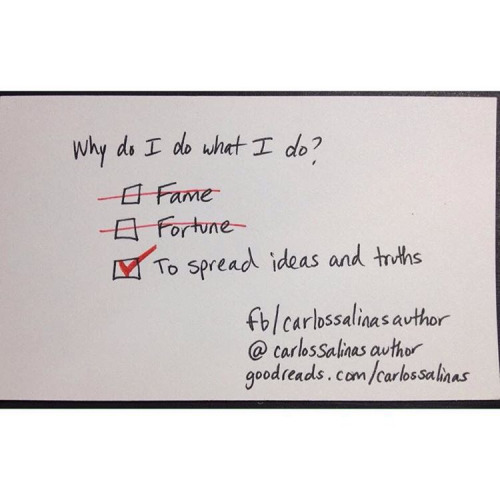 Why do I do what I do?
Fame
Fortune
To spread ideas and truths
fb/carlossalinasauthor
@carlossalinasauthor
goodreads.com/carlossalinas